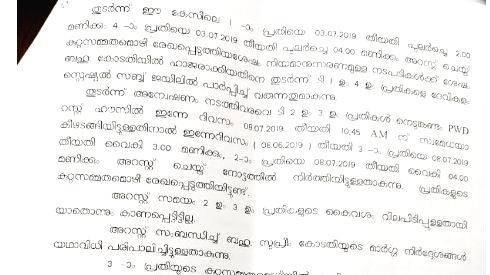 തുടർന്ന് ഈ കേസിലെ 1 -ാം പ്രതിയെ 03.07.2019 തീയതി പുലർച്ചെ 2.00
മണിക്കും 4 -ാം പ്രതിയെ 03.07.2019 തീയതി പുലർച്ചെ 04.00 മണിക്കും അറസ്റ്റ് ചെയ്ത്
കുറ്റസമ്മതമൊഴി രേഖപ്പെടുത്തിയശേഷം നിയമാനുസരണമുള്ള നടപടികൾക്ക് ശേഷം
ബഹു കോടതിയിൽ ഹാജരാക്കിയതിനെ തുടർന്ന് ടി 1 ഉം 4 ഉം പ്രതികളെ ദേവികുളം
സ്പെഷ്യൽ സബ്ബ് ജയിലിൽ പാർപ്പിച്ച് വരുന്നതുമാകുന്നു.
തുടർന്ന് അന്വേഷണം നടത്തിവരവെ ടി 2 ഉം 3 ഉം പ്രതികൾ നെടുങ്കണ്ടം PWD
റസ്റ്റ് ഹൗസിൽ ഇന്നേ ദിവസം 08.07.2019 തീയതി 10.45 AM ന്
കീഴടങ്ങിയിട്ടുള്ളതിനാൽ ഇന്നേദിവസം (08.06.2019) തീയതി 3 -ാം പ്രതിയെ 08.07.2019
തീയതി വൈകി 3.00 മണിക്കും, 2-ാം പ്രതിയെ 08.07.2019 തീയതി വൈകി 04.00
മണിക്കും അറസ്റ്റ് ചെയ്ത് നോട്ടത്തിൽ നിർത്തിയിട്ടുള്ളതാകുന്നു. പ്രതികളുടെ
കുറ്റസമ്മതമൊഴി രേഖപ്പെടുത്തിയിട്ടുണ്ട്.
അറസ്റ്റ് സമയം 2 ഉം 3 ഉം പ്രതികളുടെ കൈവശം വിലപിടിപ്പുള്ളതായി
യാതൊന്നും കാണപ്പെട്ടിട്ടില്ല.
അറസ്റ്റ് സംബന്ധിച്ച് ബഹു സുപ്രീം കോടതിയുടെ മാർഗ്ഗ നിർദ്ദേശങ്ങൾ
യഥാവിധി പരിപാലിച്ചിട്ടുള്ളതാകുന്നു.
3 -ാം പ്രതിയുടെ